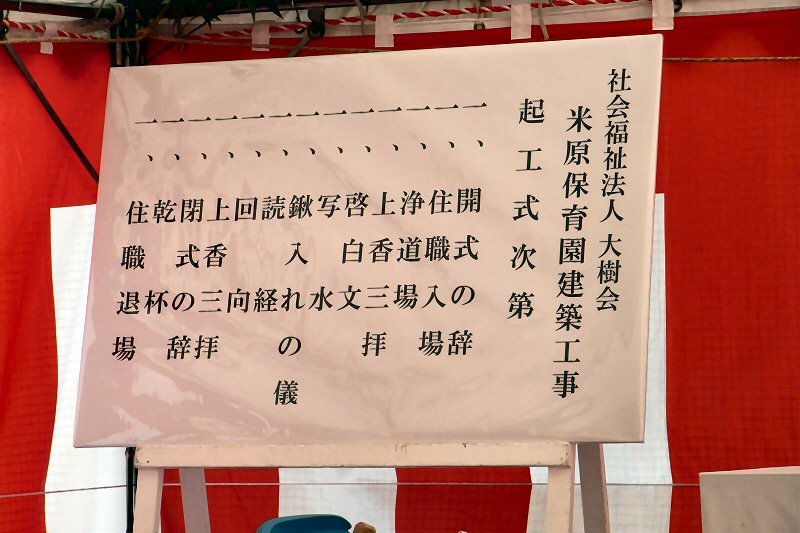 社会福祉法人 大樹会
米原保育園建築工事
起工式次第
一、開式の辞
一、住職入場
一、浄道場
一、上香三拝
一、啓白文
一、写水
一、鍬入れの儀
一、読経
一、回向
一、上香三拝
一、閉式の辞
一、乾杯
一、住職退場